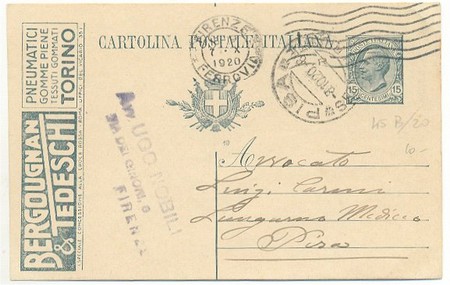 PNEUMATICI
GOMME PIENE
TESSUTI GOMMATI
TORINO
BERGOUGNAN
& TEDESCHI
CARTOLINA POSTALE ITALIANA
FIRENZE
1920
FERROVIA
PISA
15
15
Avv. UGO NOBILI
FIRENZE
45 B/20
10-
Avvocato
Luigi
Lungarno Mediceo
Pisa